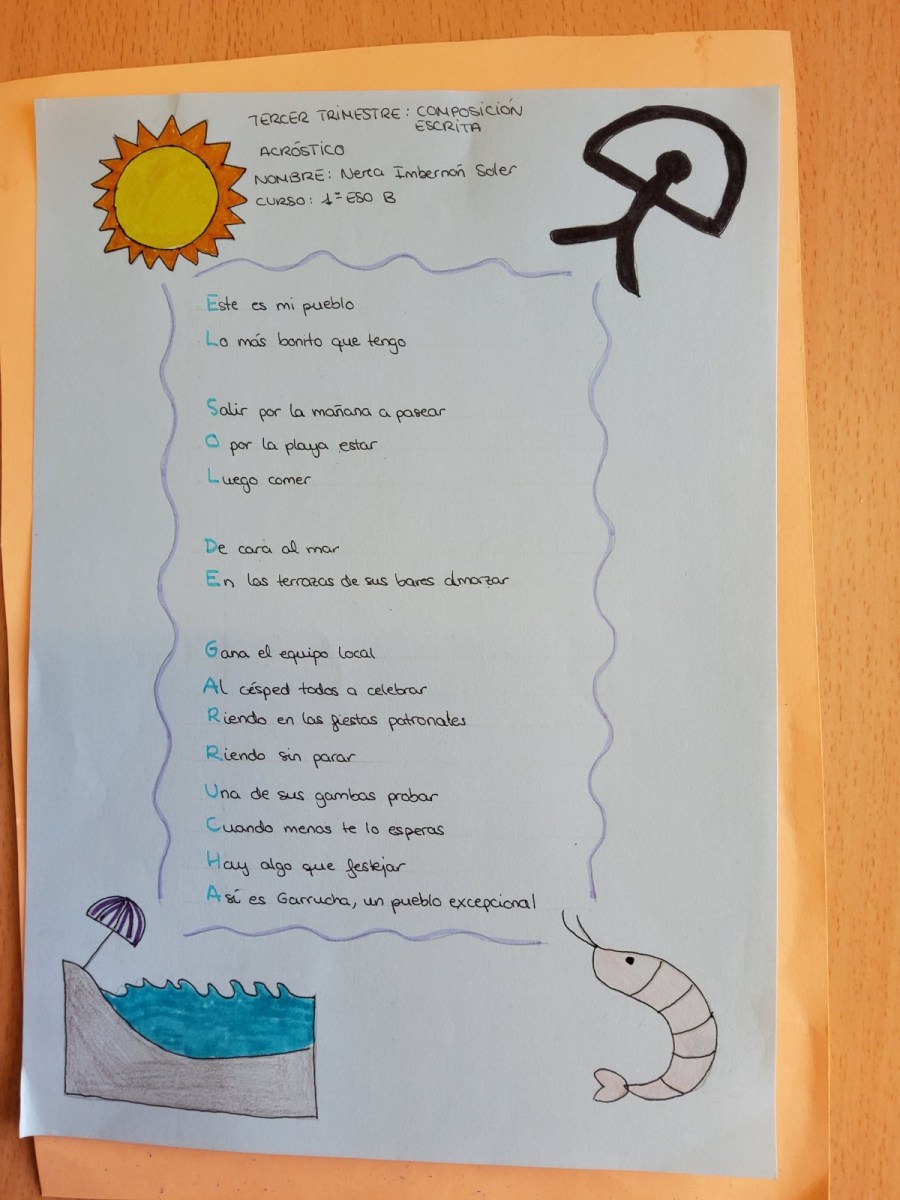 TERCER TRIMESTRE: COMPOSICIÓN
ESCRITA
ACRÓSTICO
NOMBRE: Nerea Imbernón Soler
CURSO: 1º ESO B
Este es mi pueblo
Lo más bonito que tengo
Salir por la mañana a pasear
O por la playa estar
Luego comer
De cara al mar
En las terrazas de sus bares almorzar
Gana el equipo local
Al césped todos a celebrar
Riendo en las fiestas patronales
Riendo sin parar
Una de sus gambas probar
Cuando menos te lo esperas
Hay algo que festejar
Así es Garrucha, un pueblo excepcional